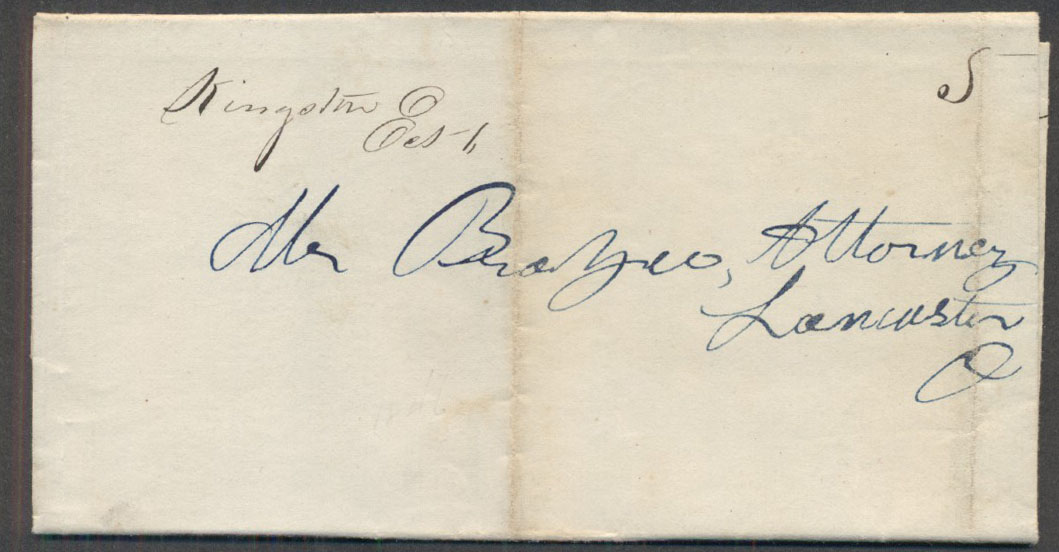 Kingston O
Oct 1,
5
Mr Brazee, Attorney
Lancaster
O